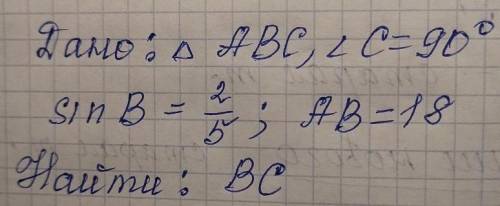 Дано: △ ABC, ∠ C = 90°
sin B = 2/5; AB = 18
Найти: BC